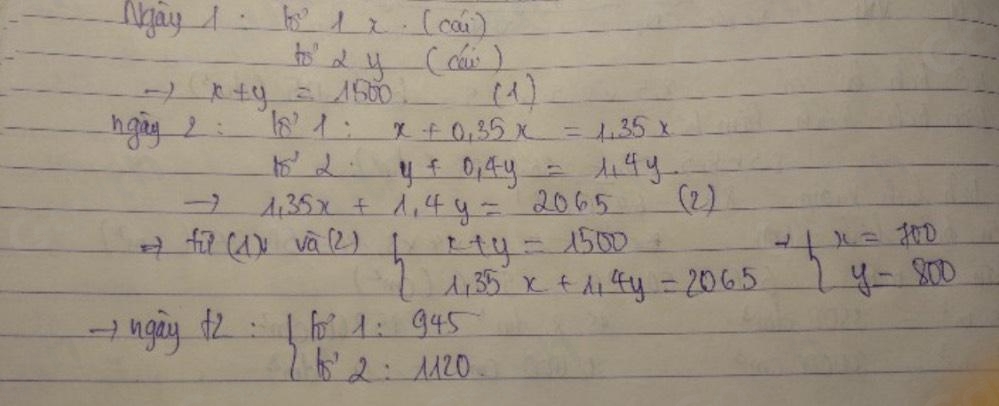 Ngày 1 : tổ 1 x (cái)
tổ 2 y (cái)
→ x+y = 1500 (1)
ngày 2 : tổ 1 : x + 0,35x = 1,35x
tổ 2 : y + 0,4y = 1,4y
→ 1,35x + 1,4y = 2065 (2)
→ từ (1) và (2) { x+y = 1500 → { x = 700
1,35x + 1,4y = 2065 y = 800
→ ngày t2 : { tổ 1 : 945
tổ 2 : 1120